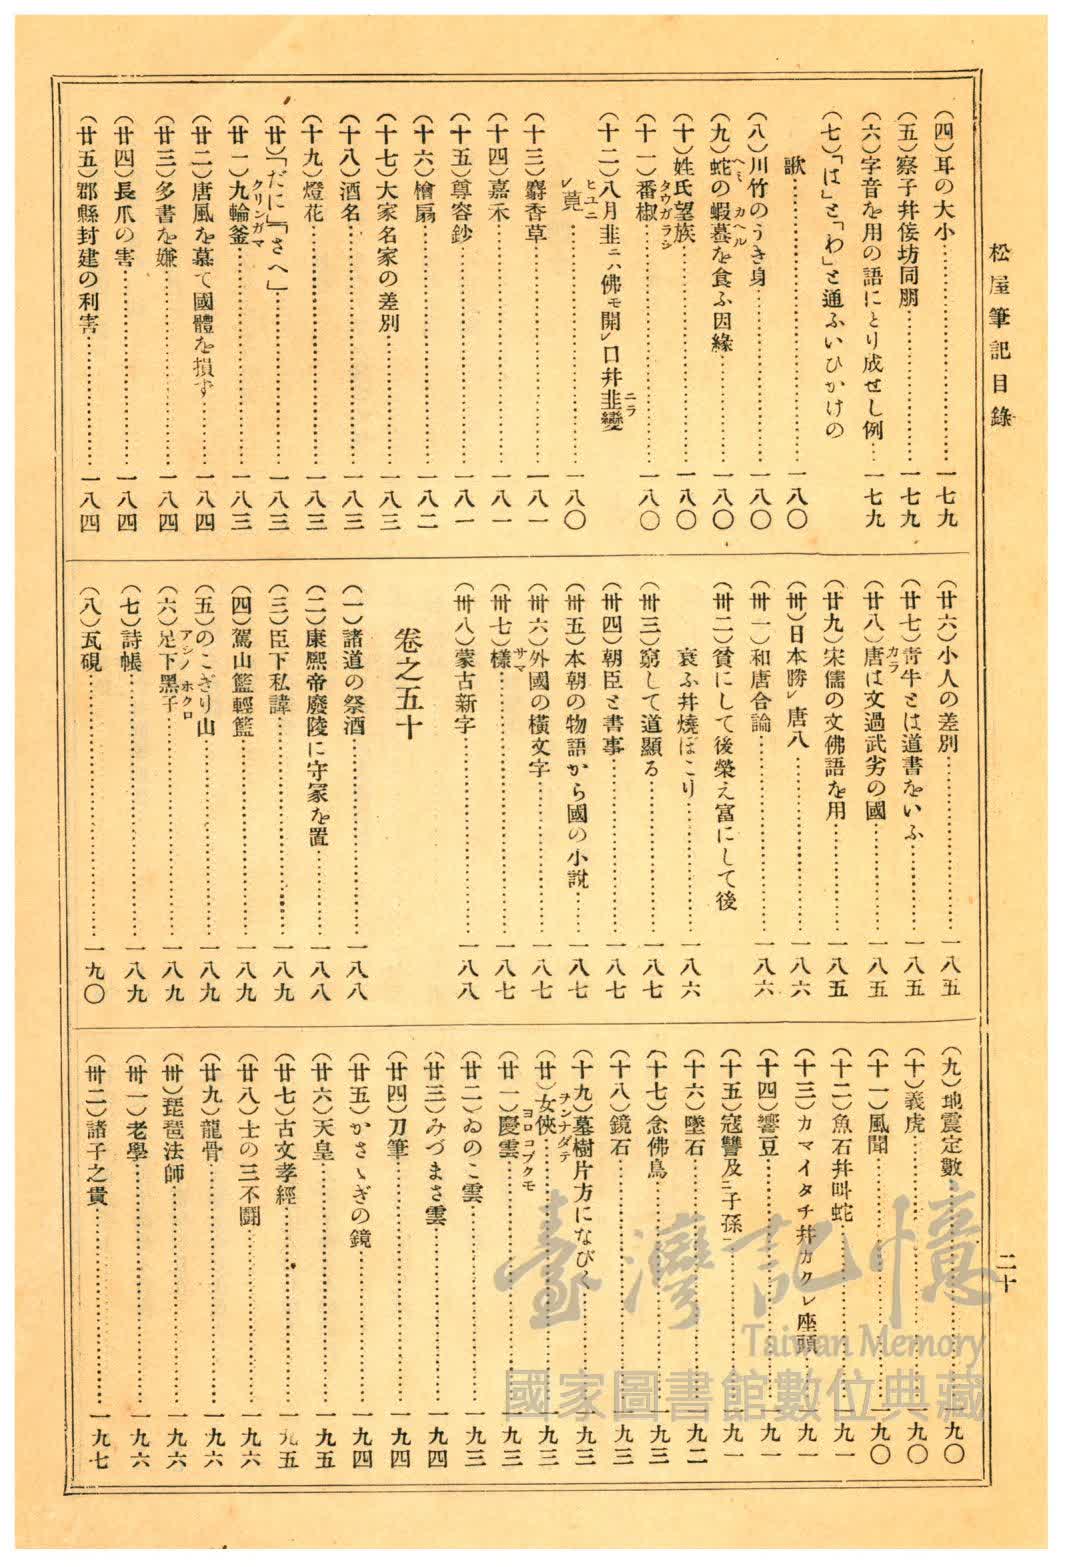 松屋筆記目錄
二十
(四)耳の大小……一七九
(五)察子幷倿坊同朋……一七九
(六)字音を用の語にとり成せし例…一七九
(七)「は」と「わ」と通ふいひかけの
歌……一八〇
(八)川竹のうき身……一八〇
(九)蛇の蝦蟇を食ふ因緣……一八〇
ヘミ カヘル
(十)姓氏望族……一八〇
(十一)番椒……一八〇
タウガラシ
(十二)八月韭ニハ佛モ開レ口幷韭變
ニラ
レ莧……一八〇
ヒユニ
(十三)麝香草……一八一
(十四)嘉禾……一八一
(十五)尊容鈔……一八一
(十六)檜扇……一八二
(十七)大家名家の差別……一八三
(十八)酒名……一八三
(十九)燈花……一八三
(廿)「だに」「さへ」……一八三
(廿一)九輪釜……一八三
クリンガマ
(廿二)唐風を慕て國體を損ず……一八四
(廿三)多書を嫌……一八四
(廿四)長爪の害……一八四
(廿五)郡縣封建の利害……一八四
(廿六)小人の差別……一八五
(廿七)靑牛とは道書をいふ……一八五
(廿八)唐は文過武劣の國……一八五
カラ
(廿九)宋儒の文佛語を用……一八五
(卅)日本勝レ唐八……一八六
(卅一)和唐合論……一八六
(卅二)貧にして後榮え富にして後
衰ふ幷燒ぼこり……一八六
(卅三)窮して道顯る……一八七
(卅四)朝臣と書事……一八七
(卅五)本朝の物語から國の小說……一八七
(卅六)外國の橫文字……一八七
(卅七)樣……一八七
サマ
(卅八)蒙古新字……一八八
卷之五十
(一)諸道の祭酒……一八八
(二)康熙帝廢陵に守冢を置……一八八
(三)臣下私諱……一八九
(四)駕山籃輕籃……一八九
(五)のこぎり山……一八九
(六)足下黑子……一八九
アシノ ホクロ
(七)詩帳……一八九
(八)瓦硯……一九〇
(九)地震定數……一九〇
(十)義虎……一九〇
(十一)風聞……一九〇
(十二)魚石幷叫蛇……一九一
(十三)カマイタチ幷カクレ座頭……一九一
(十四)響豆……一九一
(十五)寇讐及ニ子孫一……一九一
(十六)墜石……一九二
(十七)念佛鳥……一九三
(十八)鏡石……一九三
(十九)墓樹片方になびく……一九三
(廿)女俠……一九三
ヲンナダテ
(廿一)慶雲……一九三
ヨロコブクモ
(廿二)ゐのこ雲……一九三
(廿三)みづまさ雲……一九四
(廿四)刀筆……一九四
(廿五)かさゝぎの鏡……一九四
(廿六)天皇……一九五
(廿七)古文孝經……一九五
(廿八)士の三不鬪……一九六
(廿九)龍骨……一九六
(卅)琵琶法師……一九六
(卅一)老學……一九六
(卅二)諸子之貴……一九七
臺灣記憶
Taiwan Memory
國家圖書館數位典藏